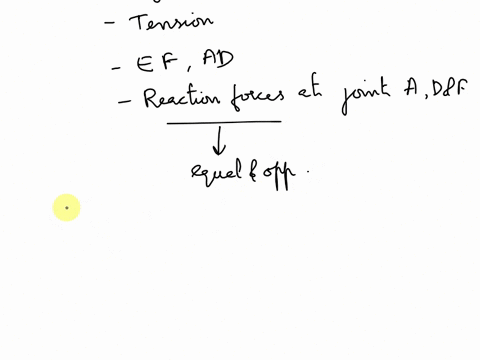 - Tension
- EF, AD
- Reaction forces at joint A, D&F
equal & opp.